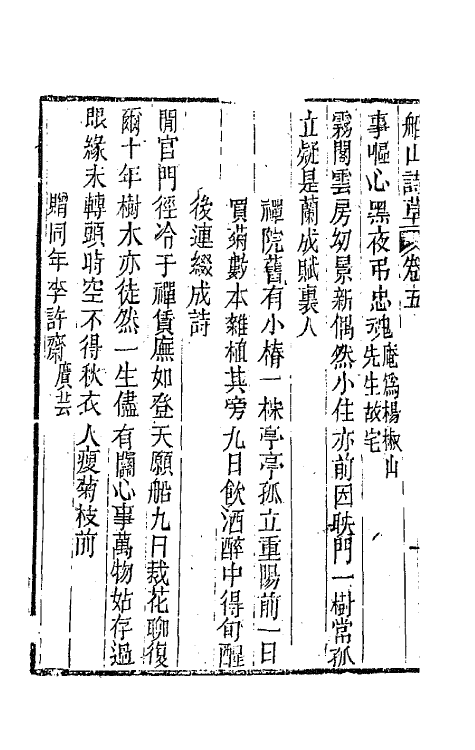 船山詩草 卷五
事嘔心黑夜弔忠魂庵為楊椒山先生故宅
霧閣雲房幻景新偶然小住亦前因映門一樹常孤
立疑是蘭成賦裏人
禪院舊有小椿一株亭亭孤立重陽前一日
買菊數本雜植其旁九日飲酒醉中得句醒
後連綴成詩
閒官門徑冷于禪賃廡如登天願船九日栽花聊復
爾十年樹木亦徒然一生儘有關心事萬物姑存過
眼緣未轉頭時空不得秋衣人瘦菊枝前
贈同年李許齋賡芸